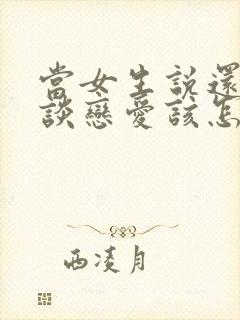 當女生說還
談戀愛該怎
西凌月